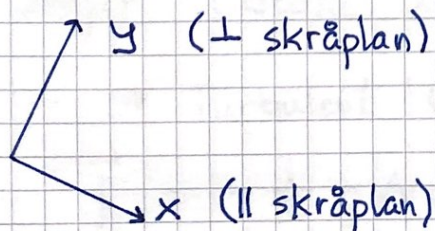 y (⊥ skråplan)
x (∥ skråplan)